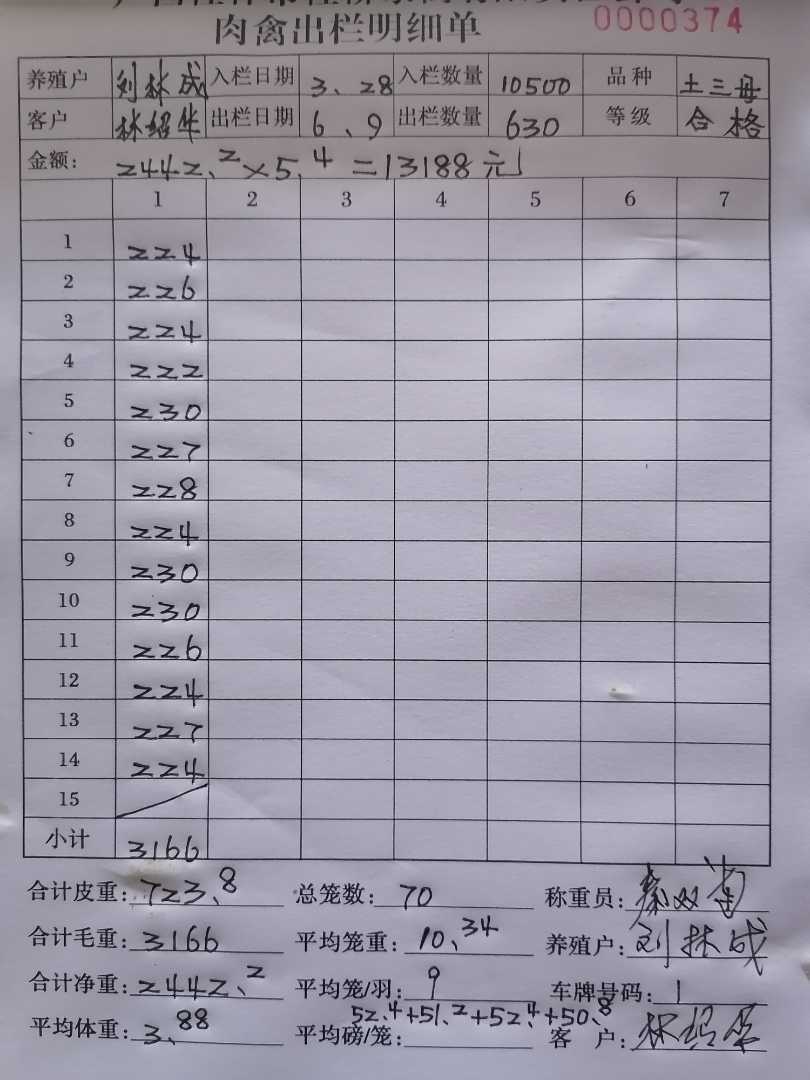 0000374
肉禽出栏明细单
养殖户 刘林成 入栏日期 3、28 入栏数量 10500 品种 土三母
客户 林绍华 出栏日期 6、9 出栏数量 630 等级 合格
金额： 2442.2×5.4=13188元
1 2 3 4 5 6 7
1 224
2 226
3 224
4 222
5 230
6 227
7 228
8 224
9 230
10 230
11 226
12 224
13 227
14 224
15
小计 3166
合计皮重：723.8 总笼数：70 称重员：秦双
合计毛重：3166 平均笼重：10.34 养殖户：刘林成
合计净重：2442.2 平均笼/羽：9 车牌号码：1
52.4+51.2+52.4+50.8
平均体重：3.88 平均磅/笼： 客户：林绍华